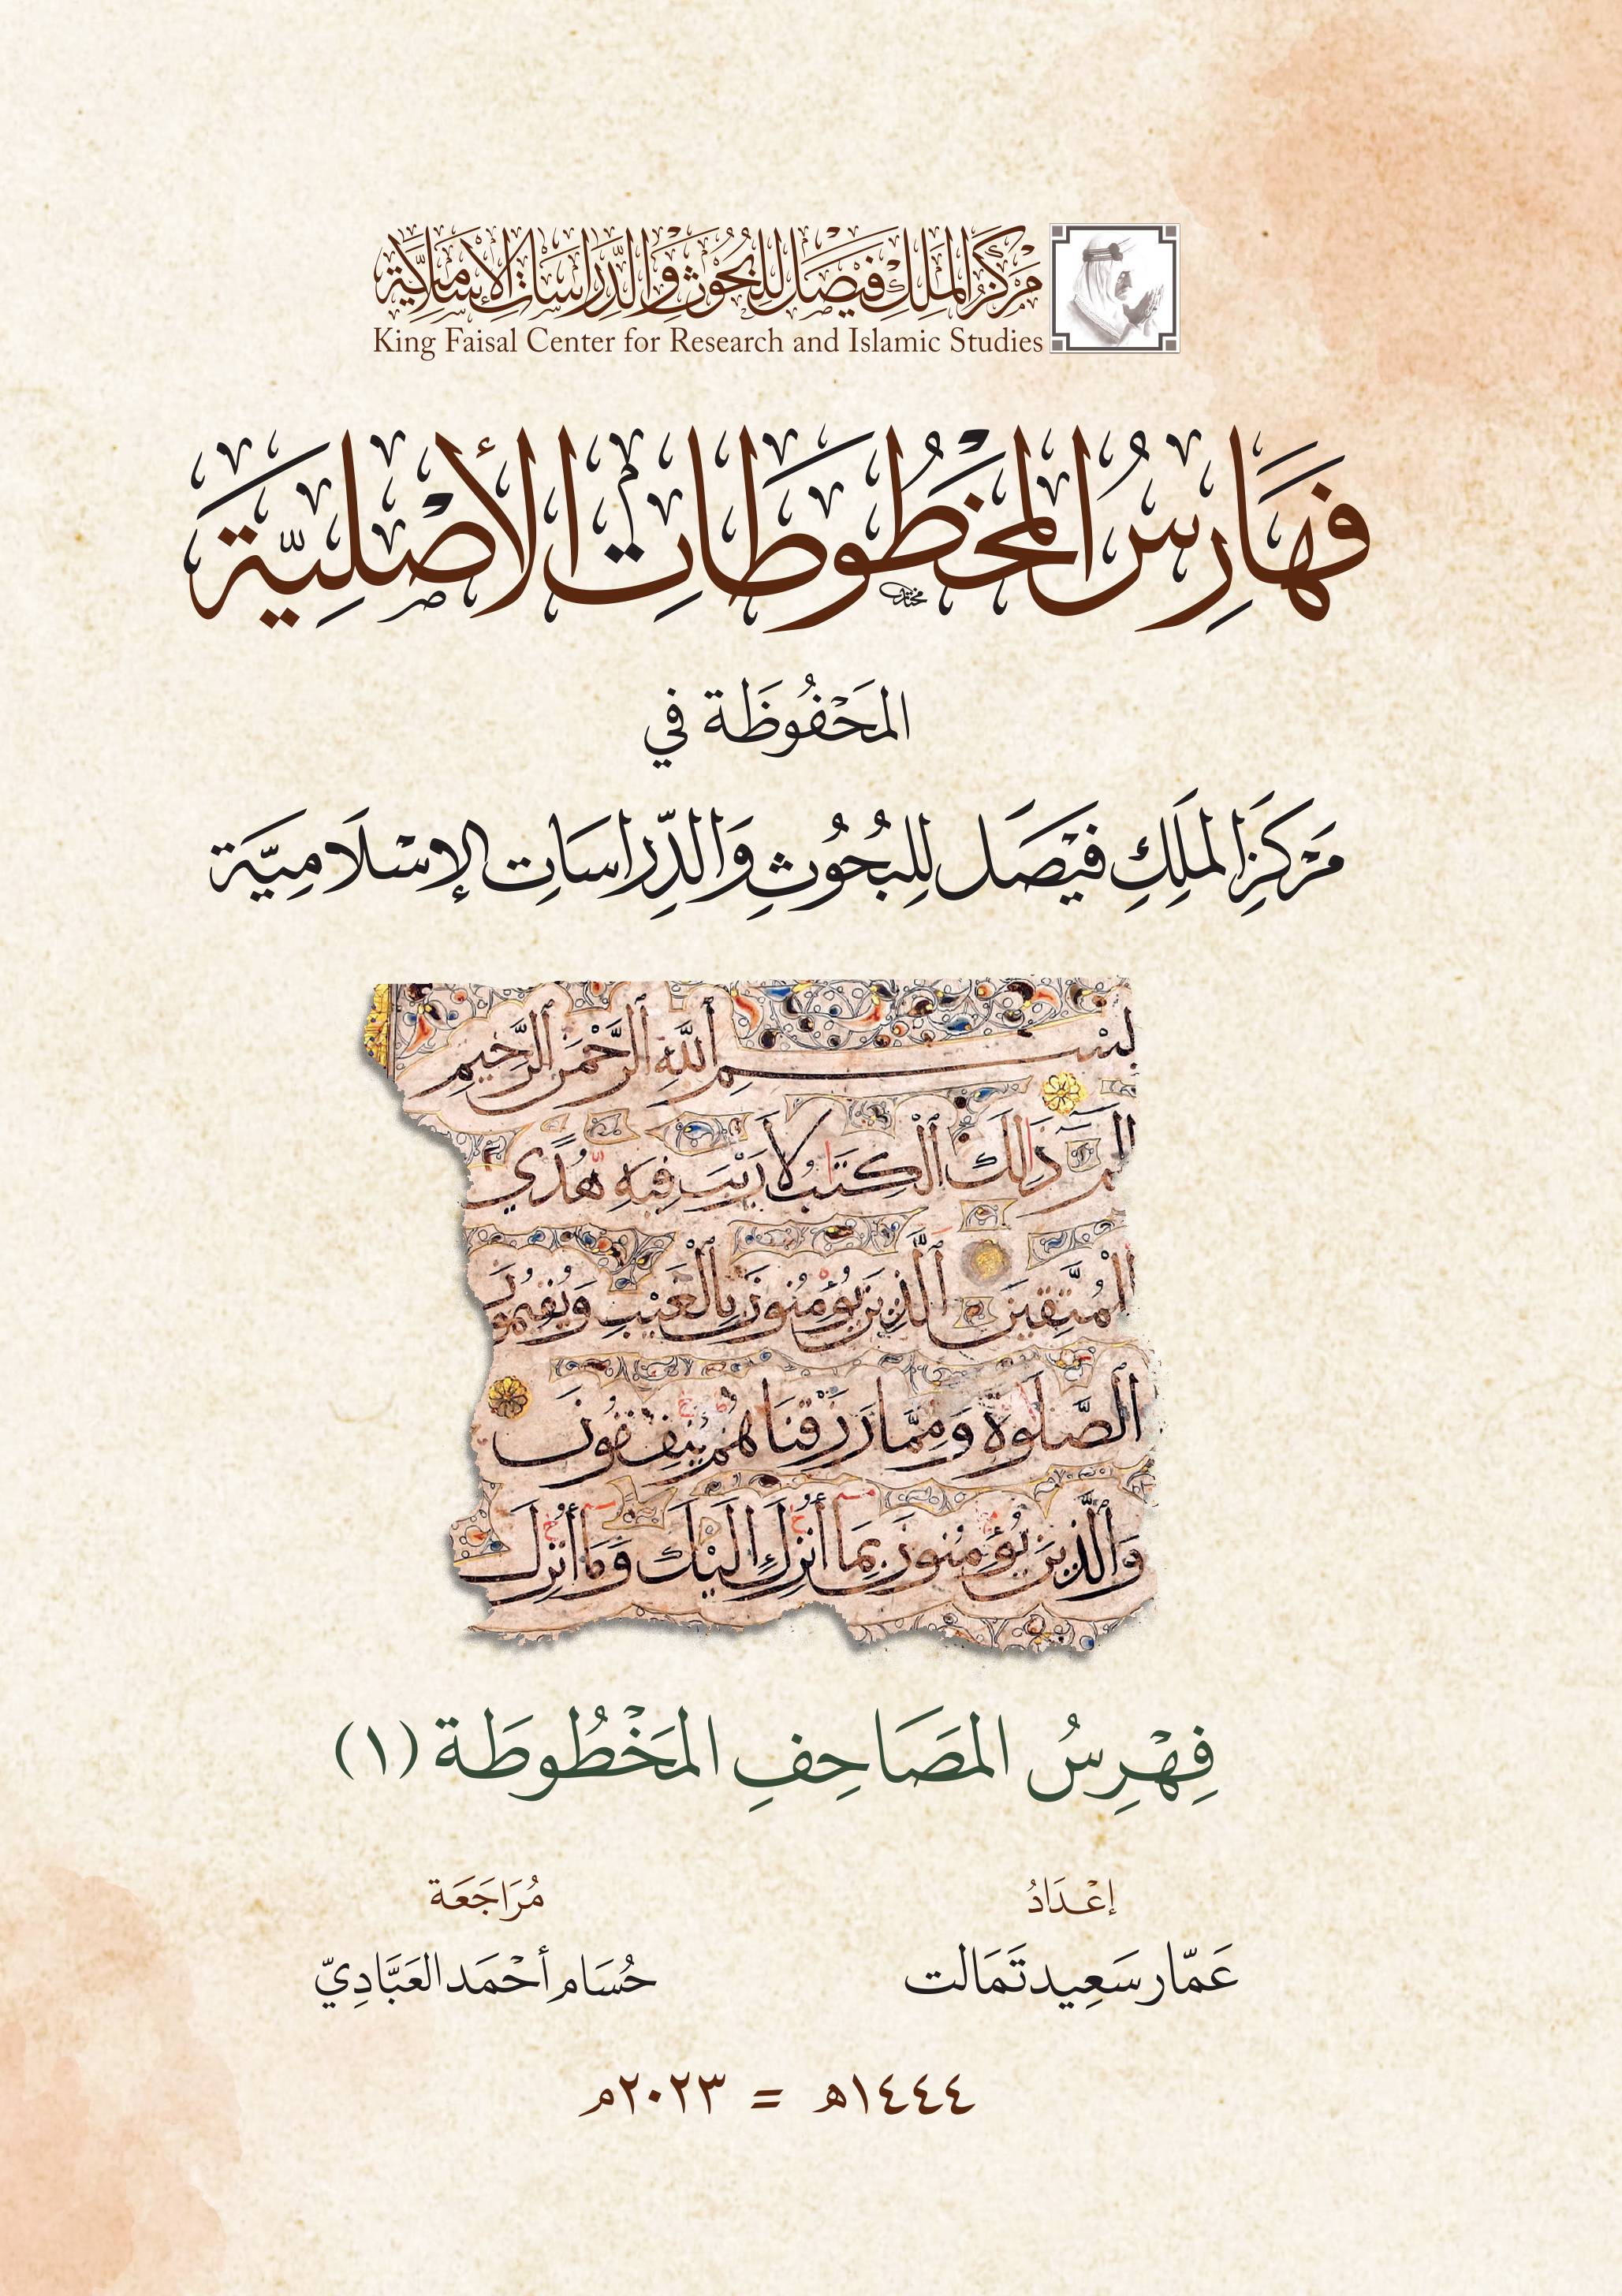 مَرْكَزُ المَلِك فَيْصَل لِلْبُحُوثِ وَالدِّرَاسَاتِ الإِسْلَامِيَّة
King Faisal Center for Research and Islamic Studies
فَهَارِسُ المَخْطُوطَاتِ الأَصْلِيَّة
المَحْفُوظَة في
مَرْكَزِ المَلِكِ فَيْصَل لِلبُحُوثِ وَالدِّرَاسَاتِ الإسْلَامِيَّة
بِسْمِ ٱللَّهِ ٱلرَّحْمَنِ ٱلرَّحِيمِ
الم ذَالِكَ ٱلْكِتَٰبُ لَا رَيْبَ فِيهِ هُدًى
لِّلْمُتَّقِينَ ٱلَّذِينَ يُؤْمِنُونَ بِالْغَيْبِ وَيُقِيمُونَ
ٱلصَّلَوٰةَ وَمِمَّا رَزَقْنَاهُمْ يُنفِقُونَ
وَٱلَّذِينَ يُؤْمِنُونَ بِمَا أُنزِلَ إِلَيْكَ وَمَا أُنزِلَ
فِهْرِسُ المَصَاحِفِ المَخْطُوطَة (١)
إعْدَادُ
عَمّار سَعِيد تَمَالت
مُرَاجَعَة
حُسَام أحْمَد العَبَّادِيّ
١٤٤٤هـ = ٢٠٢٣م